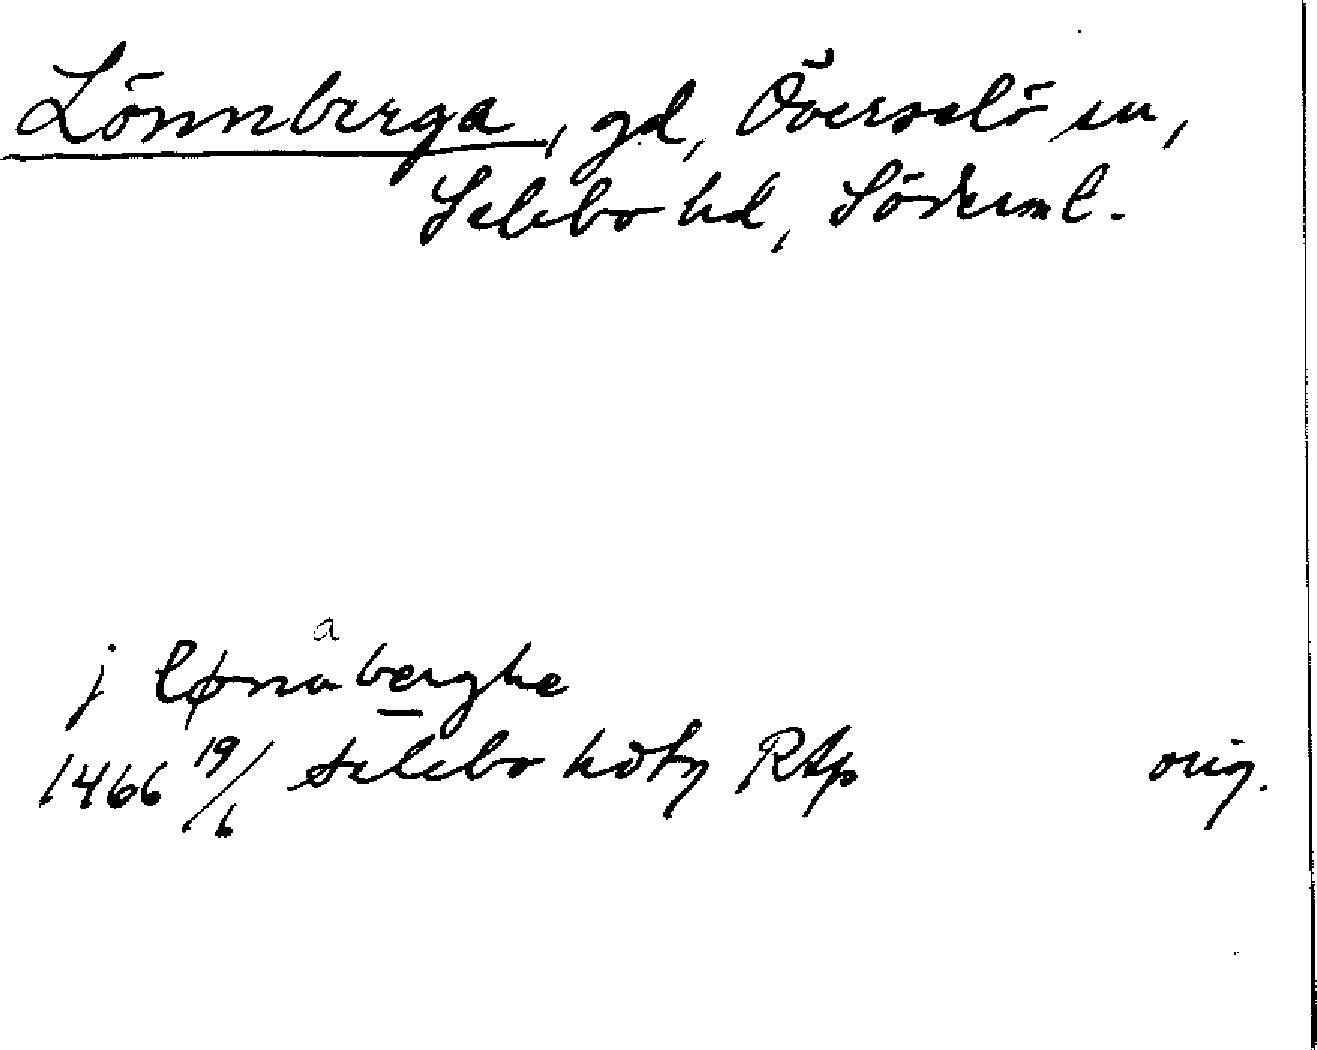 Lönnberga, gd, Överselö sn,
Selebo hd, Söderml.
a
j lønaberghe
1466 19/6 Selebo hdtg RAp orig.